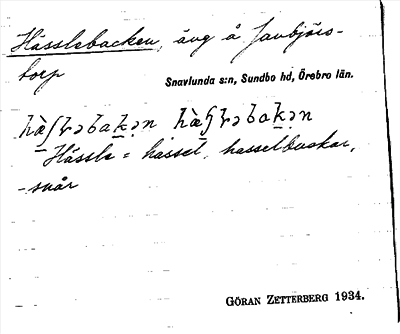 Hässlebacken, äng å Janbjörs-
torp
Snavlunda s:n, Sundbo hd, Örebro län.
Hässle = hassel, hasselbuskar,
-snår
GÖRAN ZETTERBERG 1934.